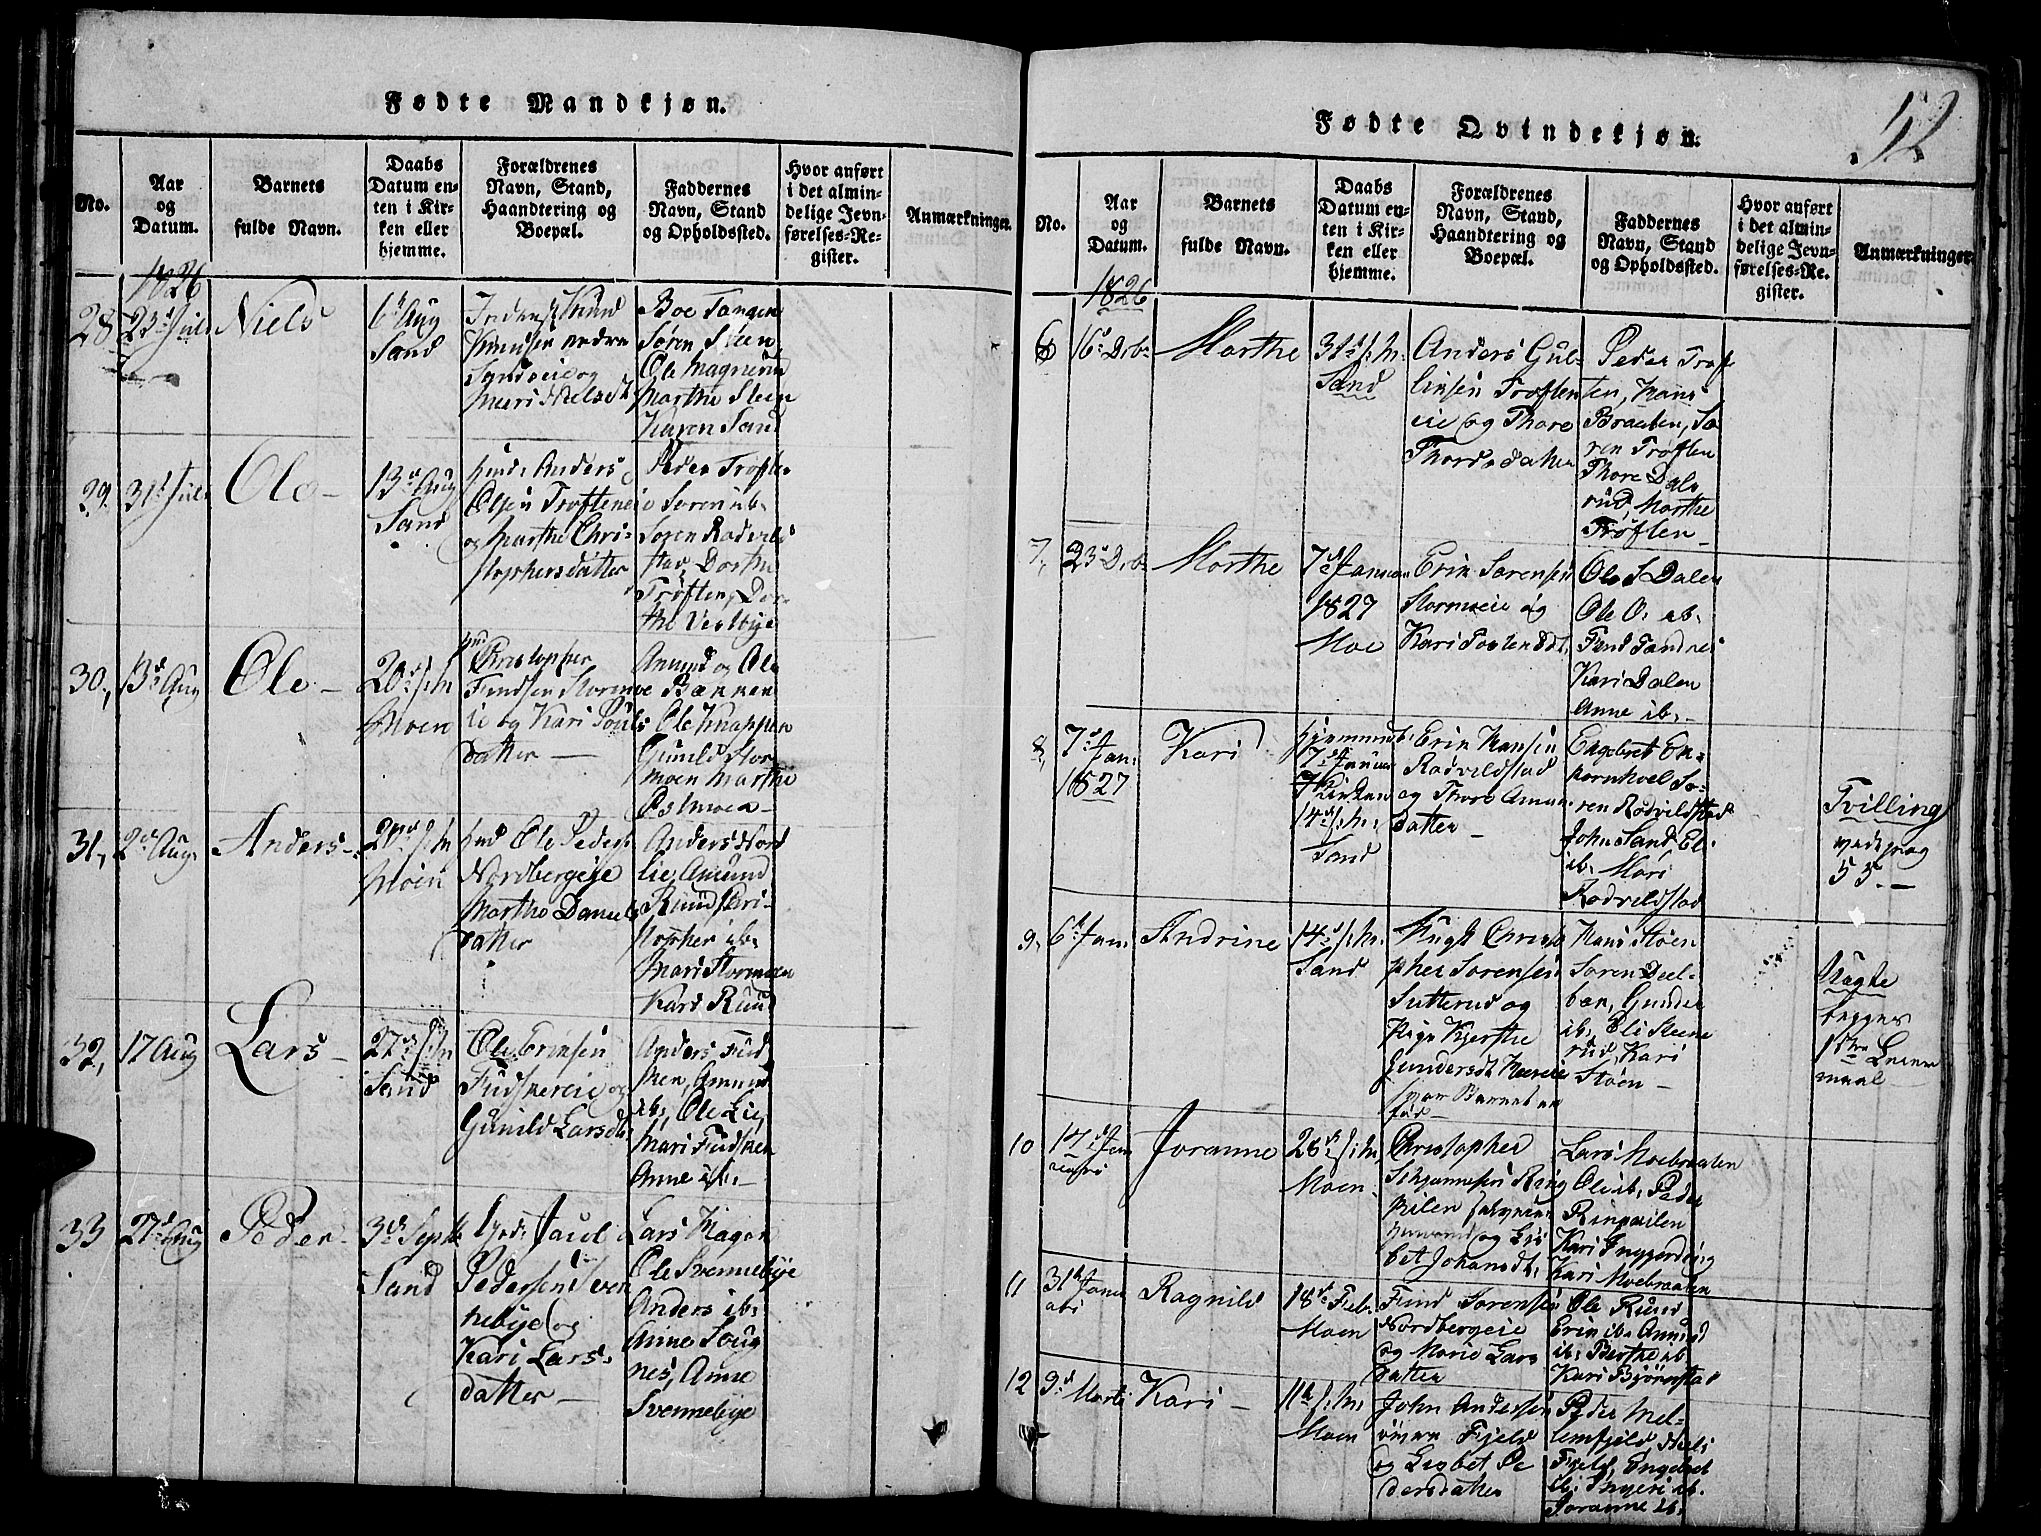 Fødte Mandkjøn.
No.
Aar og Datum.
Barnets fulde Navn.
Daabs Datum enten i Kirken eller hjemme.
Forældrenes Navn, Stand, Haandtering og Boepæl.
Faddernes Navn, Stand og Opholdssted.
Hvor anført i det almindelige Jevnførelses-Register.
Anmærkninger.
1826
28
23d Juli
Niels
6t Aug
Sand
Knud
Knudsen
og
Mari Nielsdt
Boe Tangen
Søren Steen
Ole
Marthe Steen
Karen Sand
29.
31t Juli
Ole
13d Aug
Sand
Anders
Olsen Trøfteneie
og Marthe Chri-
stophersdatter
Peder Trøften
Soren ib.
Soren Rodvild
stad, Dorthe
Trøften, Dor-
the Vestbye
30,
13d Aug
Ole
20d s:m
Moen
Christopher
Findsen Stormoe
ie og Kari Pouls
datter
Amund og Ole
Bakken
Ole Knappen
Gunild Stor
moen Marthe
Østmoen
31,
2d Aug.
Anders
20d s:m
Moen
Ole Peders
Nordbergeie
Marthe Daniels
datter
Anders Nord
lie, Amund
Ruud Chri-
stopher ib.
Mari Stormoen
Kari Ruud
32,
17 Aug
Lars
27d s:m
Sand
Ole Eriksen
Fudskereie og
Gunild Larsdt.
Anders Fud
sken, Amund
ib, Ole Lie,
Mari Fudsken
Anne ib.
33
27d Aug
Peder
3d Septb
Sand
Paul
Pedersen Sven
nebye og
Kari Lars-
datter
Lars Hagen
Ole Svennebye
Anders ib.
Anne Soug
nes, Anne
Svennebye
Fødte Qvindekjøn.
52.
No.
Aar og Datum.
Barnets fulde Navn.
Daabs Datum enten i Kirken eller hjemme.
Forældrenes Navn, Stand, Haandtering og Boepæl.
Faddernes Navn, Stand og Opholdssted.
Hvor anført i det almindelige Jevnførelses-Register.
Anmærkninger.
1826
6
16d Dcb.
Marthe
31d s:m.
Sand
Anders Gul-
liksen Trøften
eie og Thore
Thordsdatter
Peder Trøf
ten, Hans
Braaten, Sø
ren Trøften
Thore Dale
rud, Marthe
Trøften
7,
23d Dcb.
Marthe
7d Januar
1827
Moe
Erik Sørensen
Stormoeie og
Kari
Ole S Dalen
Ole O. ib.
Find
Kari Dalen
Anne ib.
8,
7d Jan.
1827
Kari
7d Januar
Kirken
14d s:m.
Sand
Erik Hansen
Rodvildstad
og Thore Amun
datter
Engebret
Sø-
ren Rodvildstad
John Sand, El.
ib. Mari
Rodvildstad
Tvilling
vide pag
55.
9,
6t Jan.
Andrine
14d s:m.
Sand
Ungk. Christo
pher Sørensen
Sutterud og
Pige Kjerstie
Gundersdt
Barnet er
fød
Hans Støen
Soren Deel-
ben, Gunder
ib, Eli Steene
rud, Kari
Støen
Uægte
begges
1ste Leier
maal
10
17d Jan
Joranne
28d s:m,
Moen
Christopher
Johannesen Ring
pilen
og Lis
bet Johansdt.
Lars Moebraaten
Ole ib, Peder
Ringpilen
Kari
Kari Moebraaten
11
31d Janu
Ragnild
18d Feb.
Moen
Find Sorensen
Nordbergeie
og Marie Lars
datter
Ole Ruud
Erik ib. Amund
ib. Berthe ib
Kari Bjørnstad
12
9d Marts
Kari
11t s:m.
Moen
John Andersen
Fjeld
og Lisbet Pe
dersdatter
Peder Mel-
lemfjeld, Niels
Fjeld, Engebret
ib. Ingeri ib.
Joranne ib.